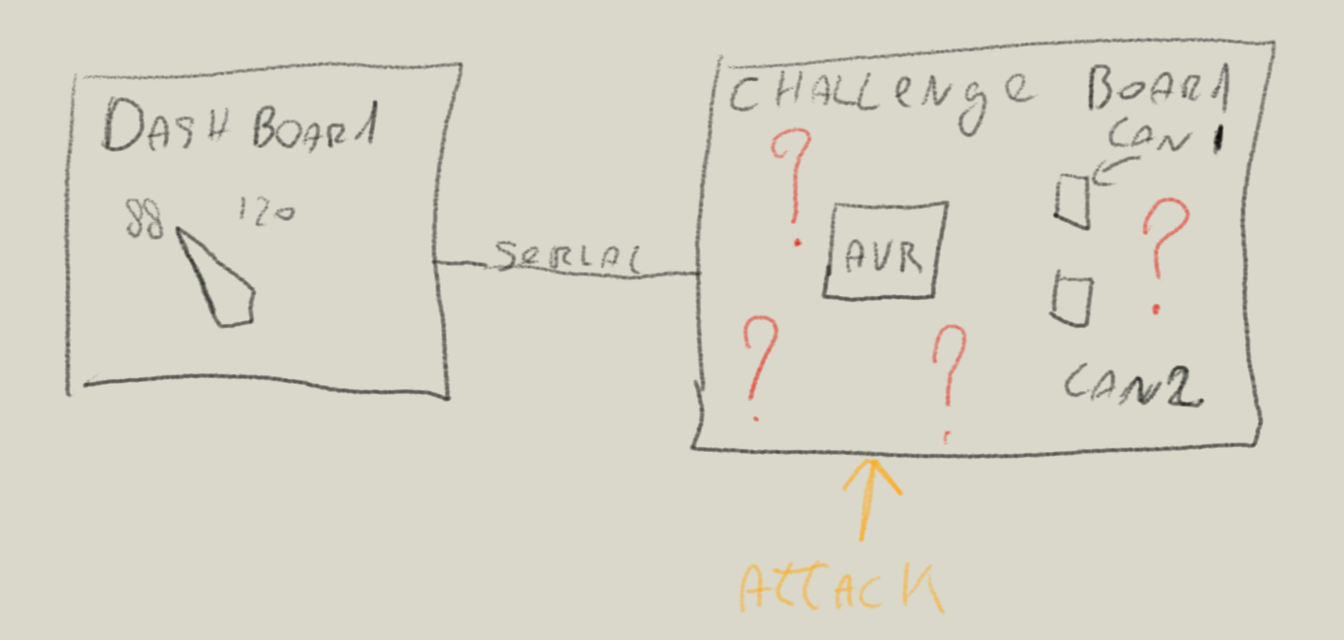 DASH BOARD
88 120
SERIAL
CHALLENGE BOARD
CAN 1
?
AVR
?
?
?
CAN2
ATTACK